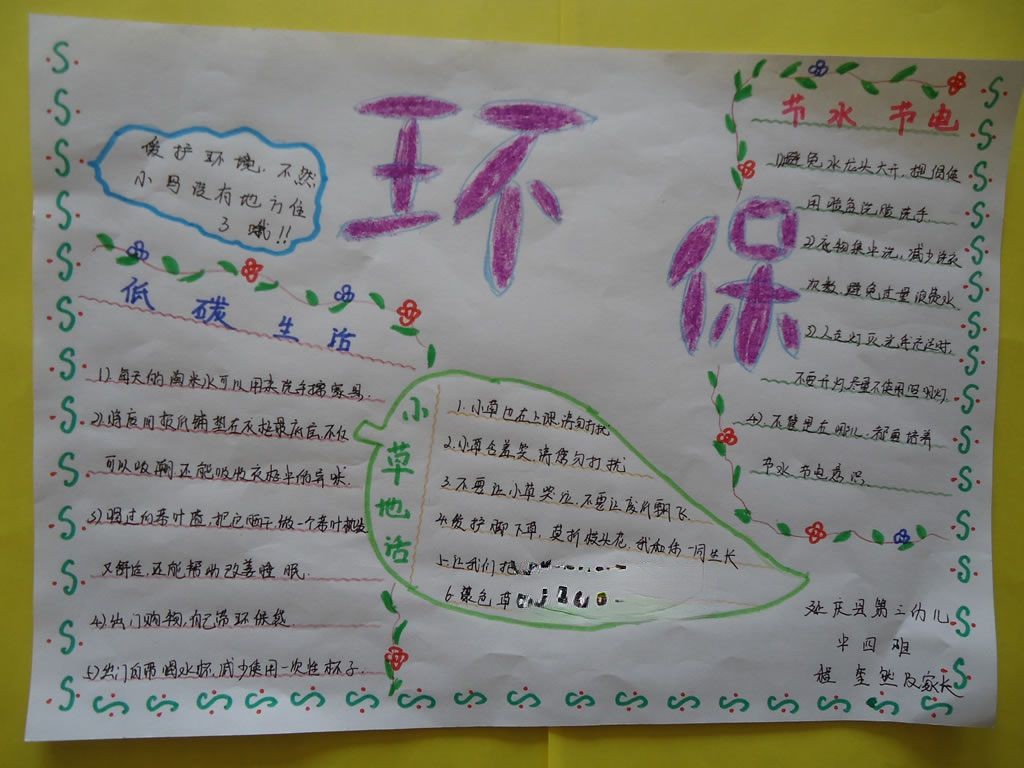 环保
爱护环境,不然
小鸟没有地方住
了哦!!
低碳生活
1).每天的淘米水可以用来洗手擦家具.
2).将废旧报纸铺垫在衣柜最底层,不仅
可以吸潮,还能吸收衣柜中的异味.
3)喝过的茶叶渣,把它晒干,做一个茶叶枕头
又舒适,还能帮助改善睡眠.
4).出门购物,自己带环保袋
5)出门自带喝水杯,减少使用一次性杯子.
小草地话
1.小草也在上课,请勿打扰
2.小草含羞笑,请您勿打扰
3.不要让小草哭泣,不要让废片飘飞.
4.爱护脚下草,莫折枝头花,我和你一同生长
5.让我们把
6.绿色草
节水 节电
1)避免水龙头大开,提倡使
用脸盆洗脸洗手.
2)衣物集中洗,减少洗衣
次数,避免过量浪费水
3)人走灯灭,光线充足时,
不要开灯,尽量不使用照明灯.
4).不管是在哪儿,都要培养
节水 节电意识.
延庆县第三幼儿
中四班
程 奎然及家长